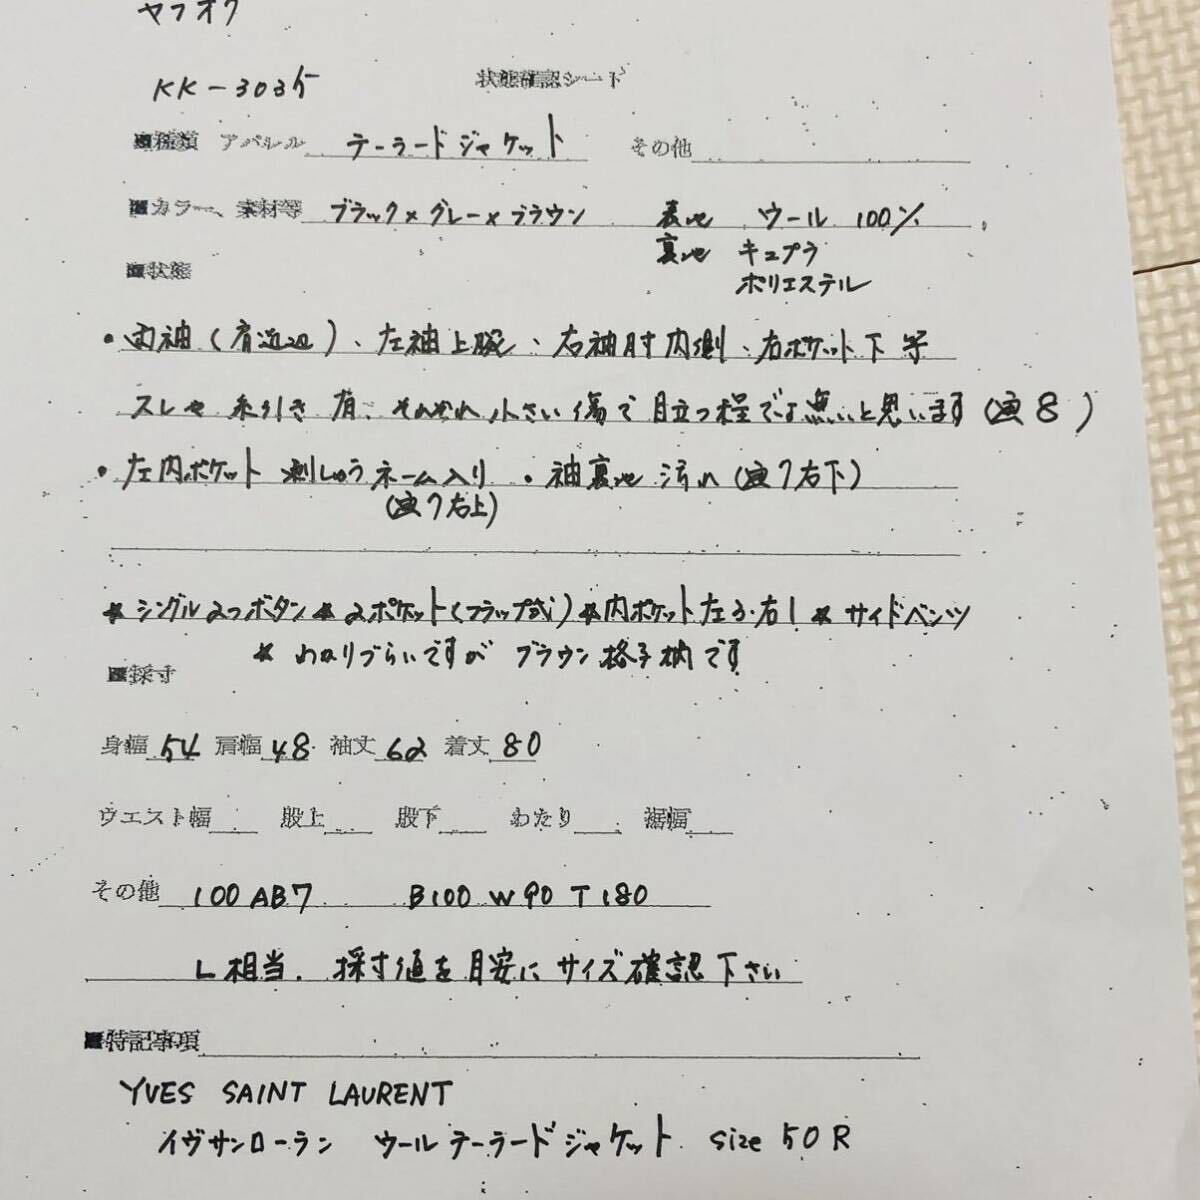 ヤフオク
KK-3035 状態確認シート
■種類 アパレル テーラードジャケット その他
■カラー、素材等 ブラック×グレー×ブラウン 表地 ウール 100%
裏地 キュプラ
■状態 ポリエステル
・両袖(肩近辺)、左袖上腕、右袖肘内側、右ポケット下 等
スレや糸引き有、それぞれ小さい傷で目立つ程では無いと思います(画8)
・左内ポケット 刺しゅうネーム入り ・袖裏地 汚れ(画7右下)
(画7右上)
*シングル2つボタン*2ポケット(フラップ式)*内ポケット左3・右1*サイドベンツ
*わかりづらいですが ブラウン格子柄です
■採寸
身幅 54 肩幅 48 袖丈 62 着丈 80
ウエスト幅 股上 股下 わたり 裾幅
その他 100AB7 B100 W90 T180
L相当. 採寸値を目安にサイズ確認下さい
■特記事項
YVES SAINT LAURENT
イヴサンローラン ウールテーラードジャケット size 50R